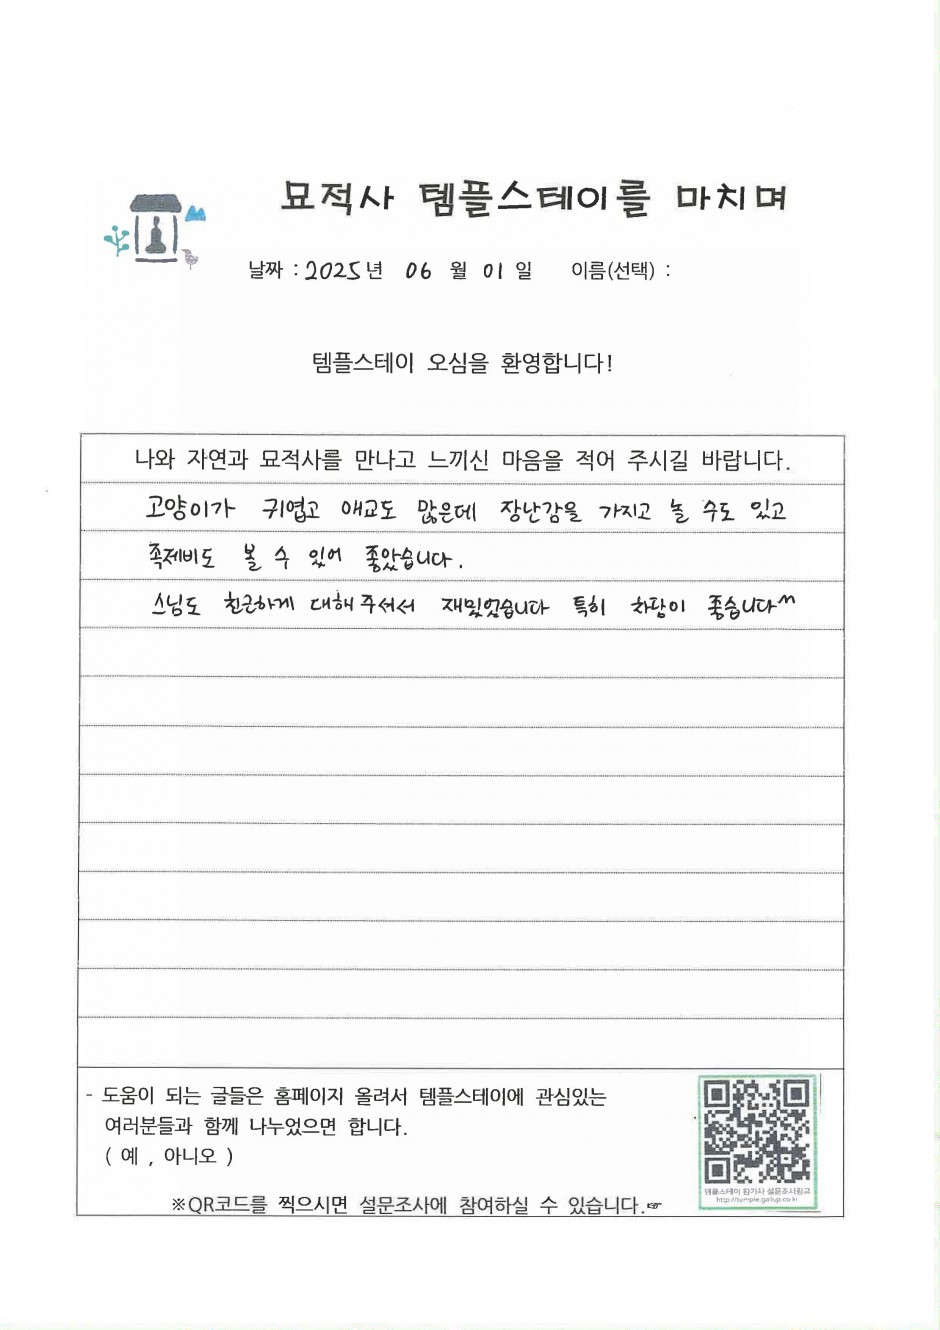 묘적사 템플스테이를 마치며
날짜 : 2025년 06 월 01 일 이름(선택) :
템플스테이 오심을 환영합니다!
나와 자연과 묘적사를 만나고 느끼신 마음을 적어 주시길 바랍니다.
고양이가 귀엽고 애교도 많은데 장난감을 가지고 놀 수도 있고
족제비도 볼 수 있어 좋았습니다.
스님도 친근하게 대해주셔서 재밌었습니다 특히 차담이 좋습니다^^
- 도움이 되는 글들은 홈페이지 올려서 템플스테이에 관심있는
여러분들과 함께 나누었으면 합니다.
( 예 , 아니오 )
템플스테이 참가자 설문조사링크
http://temple.gallup.co.kr
※QR코드를 찍으시면 설문조사에 참여하실 수 있습니다.☞